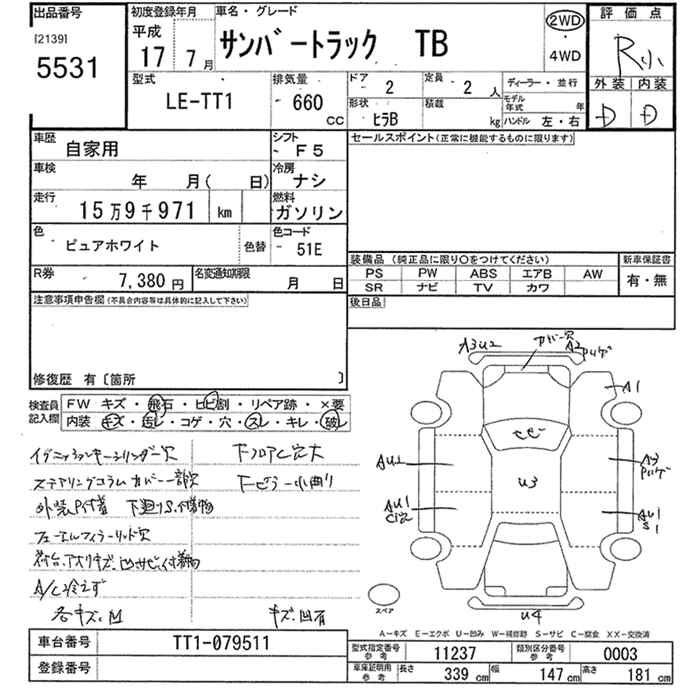 出品番号
[2139]
5531
初度登録年月
平成
17年 7月
車名・グレード
サンバートラック TB
2WD
・
4WD
評価点
R小
外装 内装
D D
型式
LE-TT1
排気量
660
cc
ドア
2
定員
2人
ディーラー・並行
形状
ヒラB
積載
kg
モデル年式 年
ハンドル 左・右
車歴
自家用
シフト
F5
車検
年 月( 日)
冷房
ナシ
走行
15万9千971 km
燃料
ガソリン
色
ピュアホワイト
色替
色コード
51E
R券
7,380円
名変通知期限
月 日
セールスポイント(正常に機能するものに限ります)
装備品(純正品に限り○をつけてください)
PS PW ABS エアB AW
SR ナビ TV カワ
新車保証書
有・無
後日品
注意事項申告欄(不具合内容等は具体的に記入して下さい)
修復歴 有〔箇所 〕
検査員記入欄
FW キズ・飛石・ヒビ割・リペア跡・×要
内装 キズ・汚レ・コゲ・穴・スレ・キレ・破レ
イグニッションキーシリンダー欠
下フロアC穴大
ステアリングコラムカバー一部欠
下ピラー小曲り
外装P付着 下廻りS.付着物
フューエルフィラーリッド欠
荷台.アオリキズ.凹サビ.付着物
A/C冷えず
各キズ.凹
キズ.凹有
A3U2
カバー欠
A2
Pハゲ
A1
AU2
A3
Pハゲ
U3
AU1
C穴
AU1
S1
U4
スペア
A−キズ E−エクボ U−凹み W−補修跡 S−サビ C−腐食 XX−交換済
車台番号
TT1-079511
登録番号
型式指定番号
参考
11237
類別区分番号
参考
0003
車庫証明用
参考
長さ 339 cm 幅 147 cm 高さ 181 cm